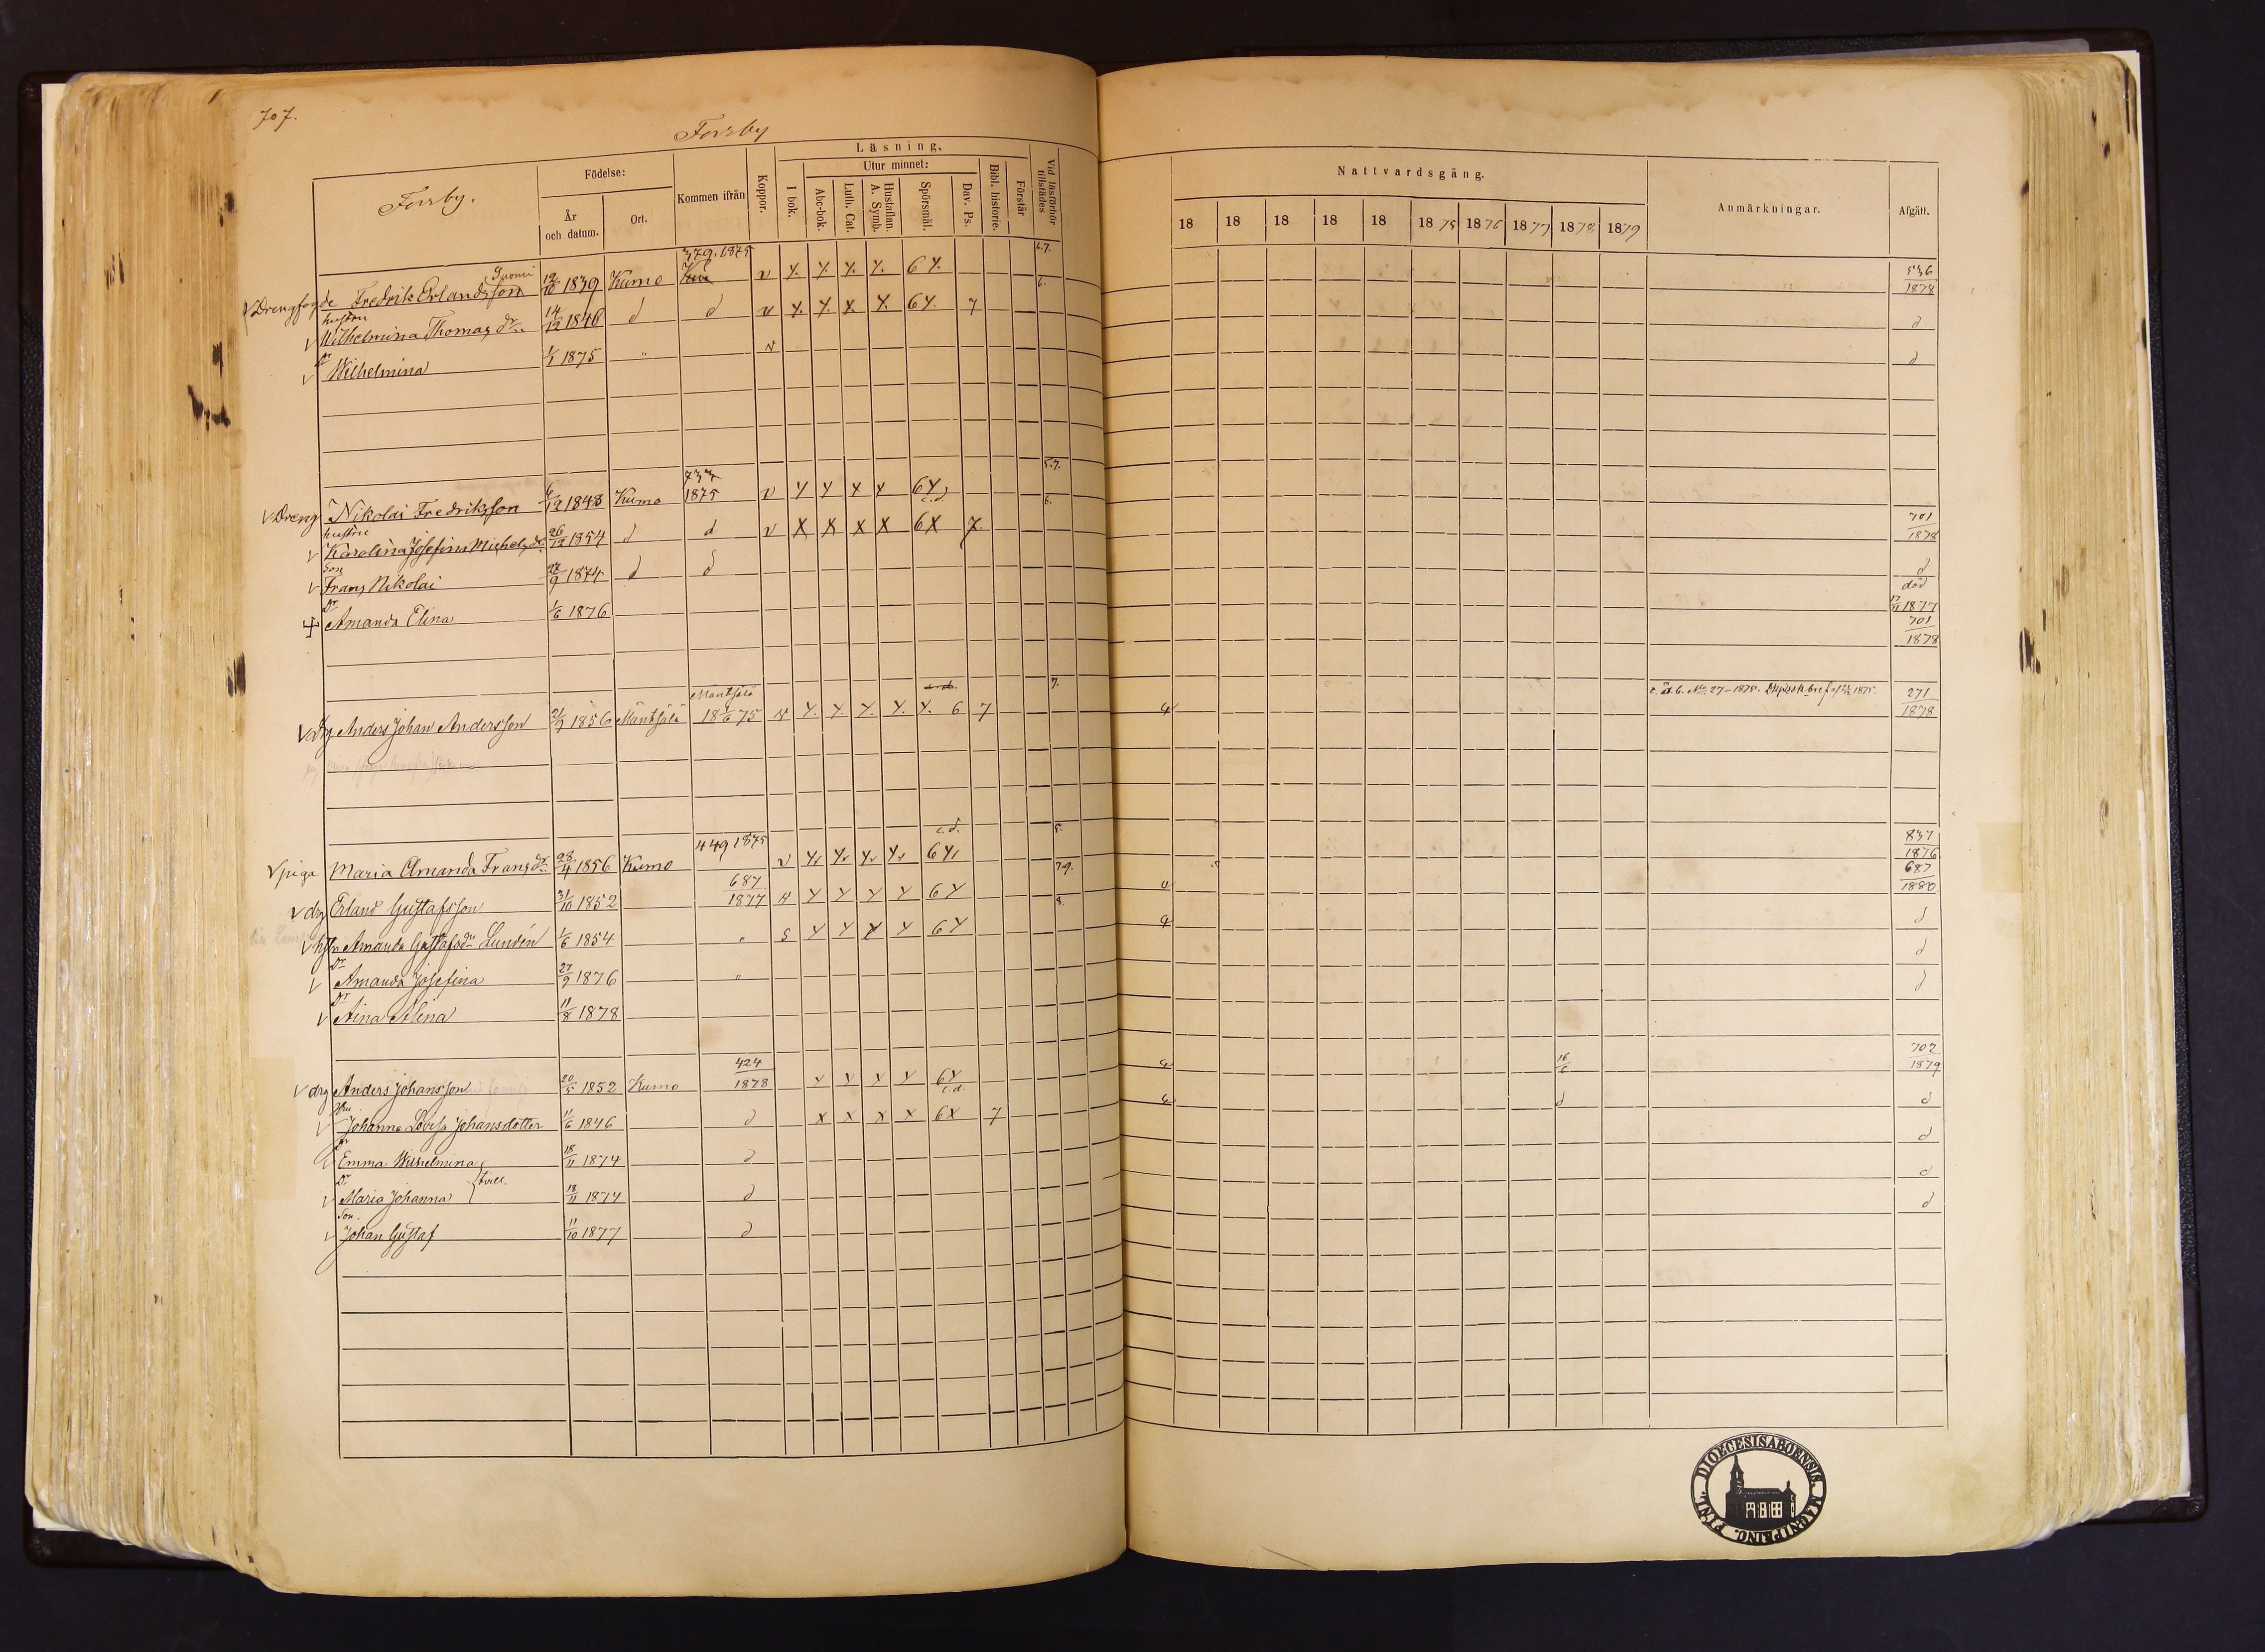 707.
Forsby
Forsby.
Födelse:
År och datum.
Ort.
Kommen ifrån
Koppor.
Läsning,
I bok.
Utur minnet:
Abc-bok.
Luth. Cat.
Hustaflan. A. Symb.
Spörsmål.
Dav. Ps.
Bibl. historie.
Förstår
Vid läsförhör tillstädes
Nattvardsgång.
18 18 18 18 18 1875 1876 1877 1878 1879
Anmärkningar.
Afgått.
379.1875 6.7.
Drengfogde Fredrik Erlandsson Suomi 12/10 1839 Kumo v 6 536/1878
hustru 6.
Wilhelmina Thomas dr 14/12 1846 d d v 6 7 d
Dr
Wilhelmina 1/1 1875 " v d
737 5.7.
Dreng Nikolai Fredriksson 6/12 1848 Kumo 1875 v 6 c.d 701/1878
hustru 6.
Karolina Josefina Michels dr 26/12 1854 d d v 6 7. d
Son
Frans Nikolai 27/9 1874 d d
Dr
Amanda Elina 1/6 1876 död 17/11 1877
701/1878
Mäntsälä 7.
drg Anders Johan Andersson 21/9 1856 Mäntsälä 18 4/6 75 v 6 7 4 No 27-1875. 1875. 271/1878
449 1875 c.d. 5.
piga Maria Amanda Frans dr 28/4 1856 Kumo v 6 837/1876
687 7.9.
drg Erland Gustafsson 31/10 1852 1877 6 4 687/1880
8.
hstn Amanda Gustafsdr Lundén 1/6 1854 " s 6 4 d
Dr
Amanda Josefina 27/9 1876 " d
Dr
Aina Alina 11/8 1878 d
424
drg Anders Johansson 20/5 1852 Kumo 1878 6 c.d 4 16/6 702/1879
Hru
Johanna Lovisa Johansdotter 11/6 1846 d 6 7 4 d d
Dr
Emma Wilhelmina 18/11 1874 d d
Dr tvill.
Maria Johanna 18/11 1874 d d
Son.
Johan Gustaf 11/10 1877 d d
DIOECESIS ABOENSIS. MAGNI PRINC. FINL.